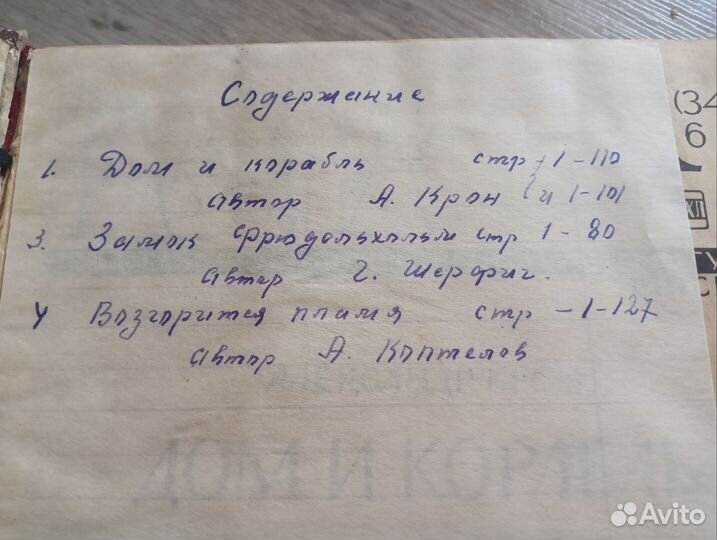 Содержание
1. Дом и корабль стр 1-110
автор А. Крон и 1-101
3. Замок Фрюдэльхольм стр 1-80
автор Г. Шерфиг.
4 Возгорится пламя стр -1-127
автор А. Коптелов
(34
6
ДОМ И КОР
Avito